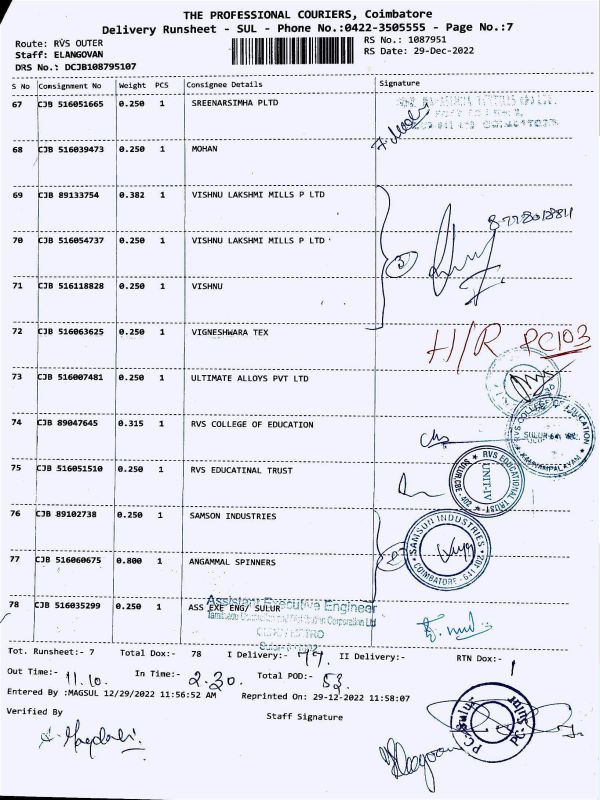 THE PROFESSIONAL COURIERS, Coimbatore
Delivery Runsheet - SUL - Phone No.:0422-3505555 - Page No.:7
Route: RVS OUTER
RS No.: 1087951
Staff: ELANGOVAN
RS Date: 29-Dec-2022
DRS No.: DCJB108795107
S No Consignment No Weight PCS Consignee Details Signature
67 CJB 516051665 0.250 1 SREENARSIMHA PLTD
68 CJB 516039473 0.250 1 MOHAN
69 CJB 89133754 0.382 1 VISHNU LAKSHMI MILLS P LTD
70 CJB 516054737 0.250 1 VISHNU LAKSHMI MILLS P LTD
3
71 CJB 516118828 0.250 1 VISHNU
72 CJB 516063625 0.250 1 VIGNESHWARA TEX H/R PC103
73 CJB 516007481 0.250 1 ULTIMATE ALLOYS PVT LTD
74 CJB 89047645 0.315 1 RVS COLLEGE OF EDUCATION
RVS COLLEGE OF EDUCATION
75 CJB 516051510 0.250 1 RVS EDUCATINAL TRUST
RVS EDUCATIONAL TRUST UNIT-IV
76 CJB 89102738 0.250 1 SAMSON INDUSTRIES
SAMSON INDUSTRIES COIMBATORE - 641 402
77 CJB 516060675 0.800 1 ANGAMMAL SPINNERS
78 CJB 516035299 0.250 1 ASS EXE ENG/ SULUR
Assistant Executive Engineer
Tot. Runsheet:- 7 Total Dox:- 78 I Delivery:- 77 II Delivery:- RTN Dox:- 1
Out Time:- 11.10. In Time:- 2.30. Total POD:- 53
Entered By :MAGSUL 12/29/2022 11:56:52 AM Reprinted On: 29-12-2022 11:58:07
Verified By Staff Signature